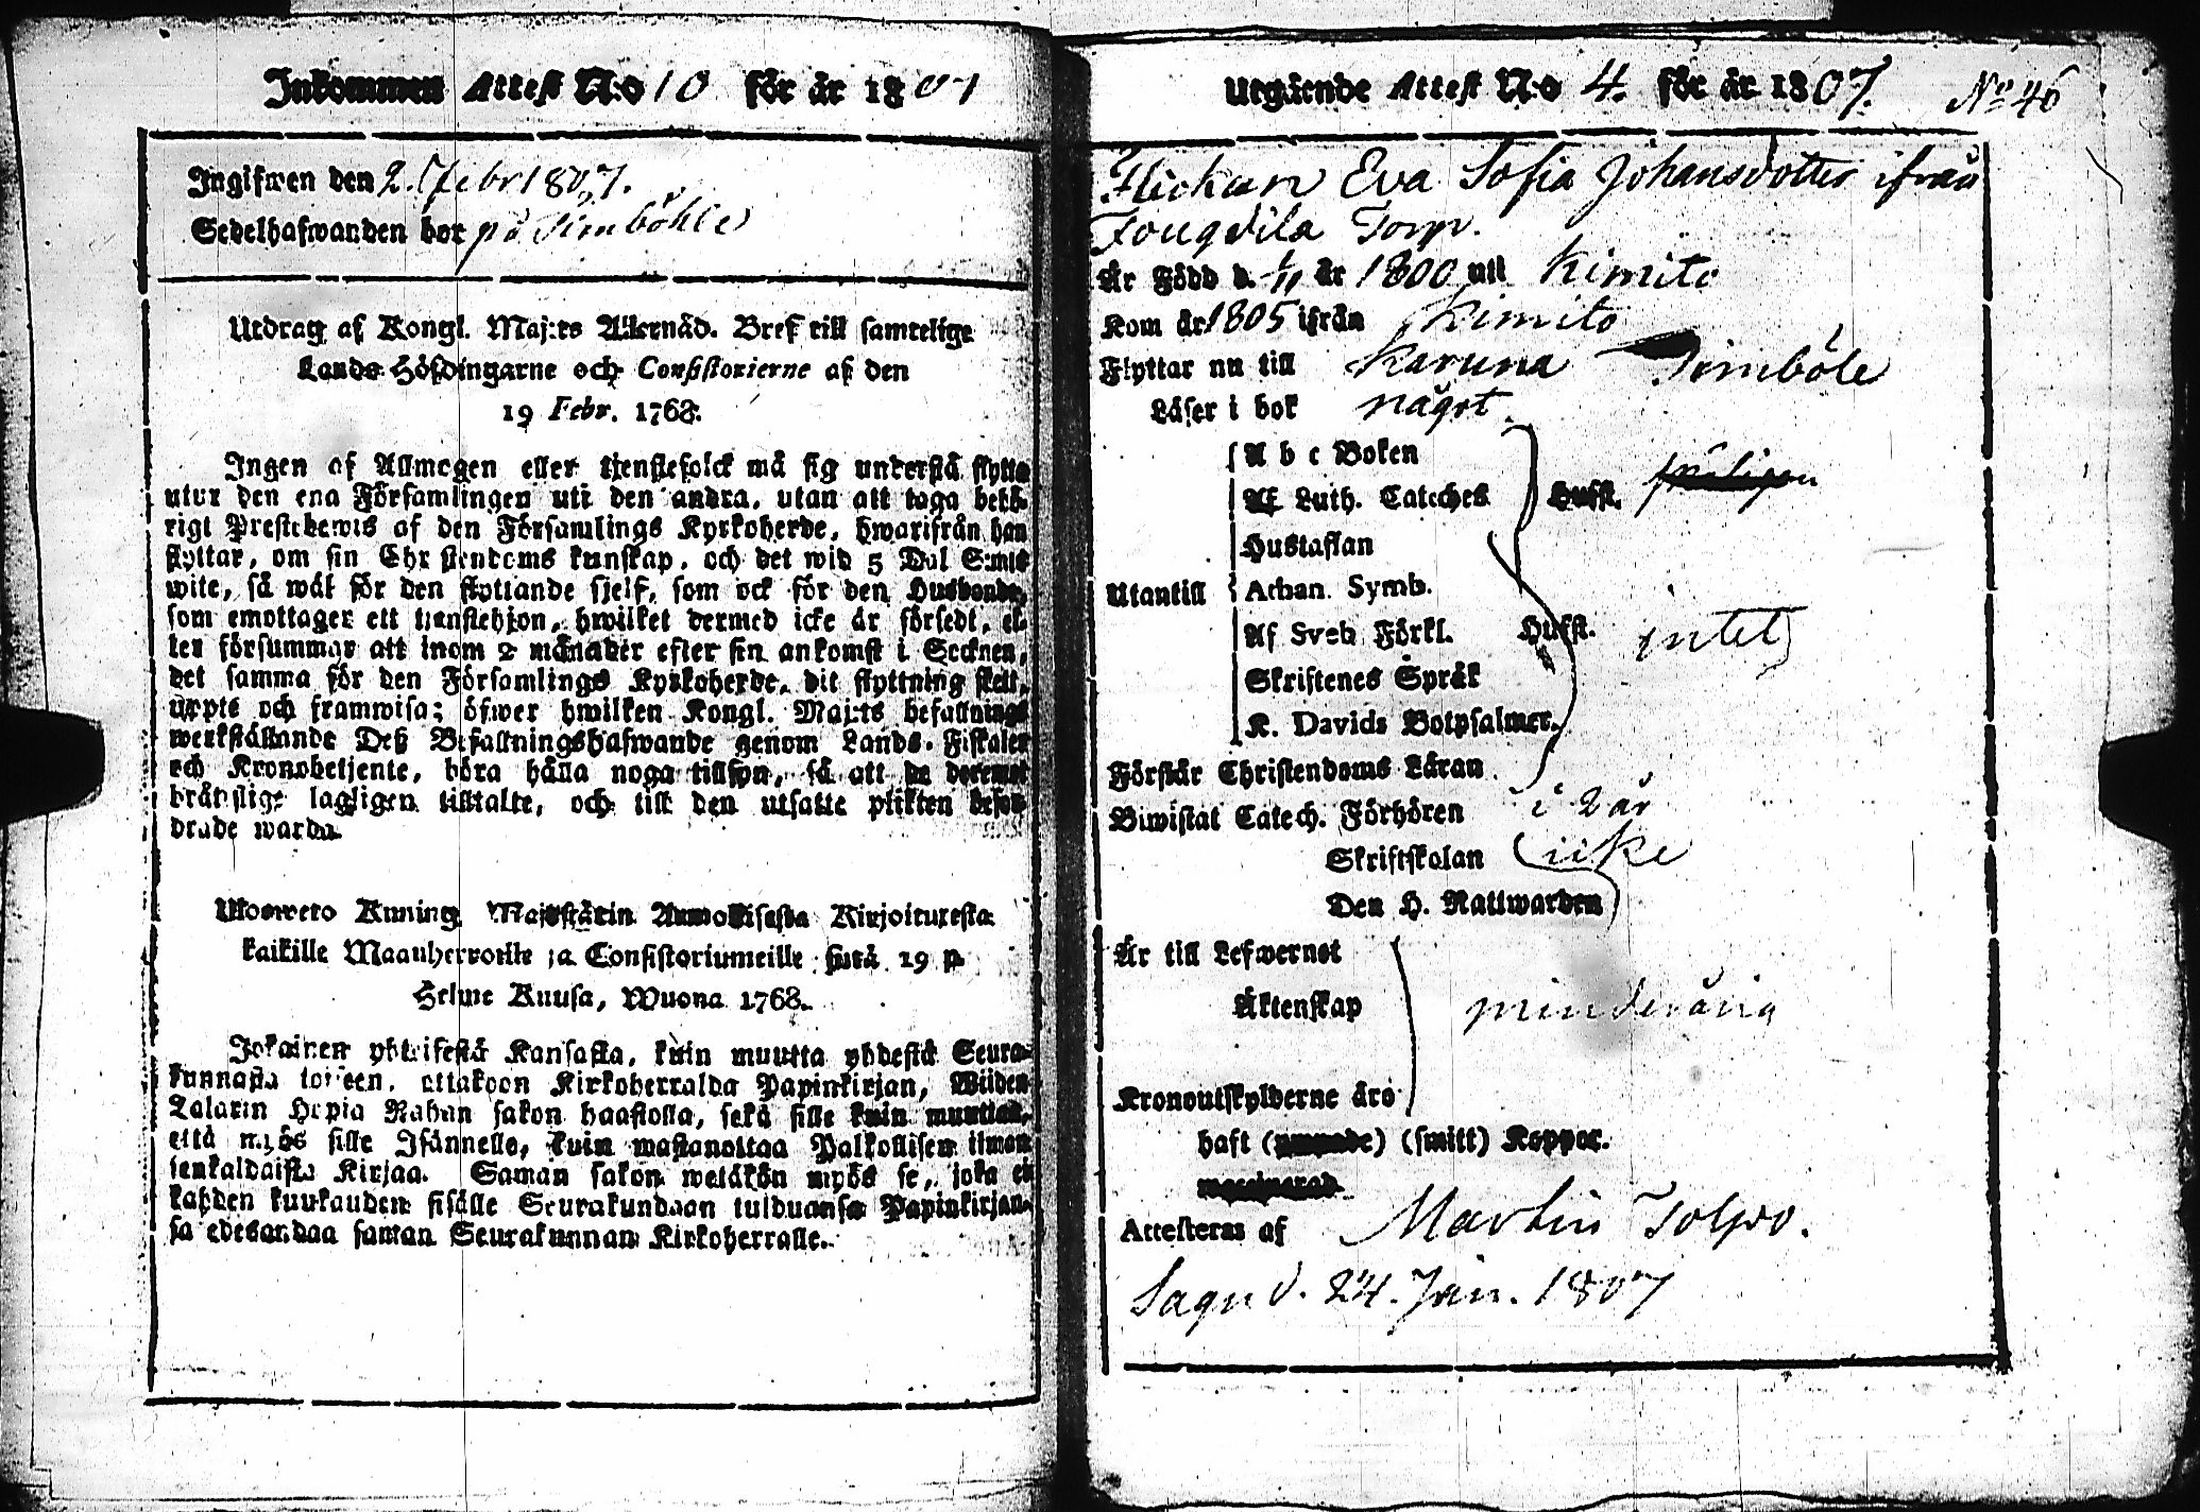 Inkommen Attest N:o 10 för år 1807
Ingifwen den 2. Febr 1807.
Sedelhafwanden bor på Simböhle
Utdrag af Kongl. Maj:ts Allernåd. Bref till samtelige
Lands-Höfdingarne och Consistorierne af den
19 Febr. 1768.
Ingen af Allmogen eller tjenstefolck må sig understå flytta
utur den ena Församlingen uti den andra, utan att taga behö-
rigt Prestebewis af den Församlings Kyrkoherde, hwarifrån han
flyttar, om sin Christendoms kunskap, och det wid 5 Dal S:mts
wite, så wäl för den flyttande sjelf, som ock för den Husbonde,
som emottager ett tjenstehjon, hwilket dermed icke är försedt, el-
ler försummar att inom 2 månader efter sin ankomst i Socknen,
det samma för den Församlings Kyrkoherde, dit flyttning skett,
uppte och framwisa; öfwer hwilken Kongl. Maj:ts befallnings
werkställande Deß Befallningshafwande genom Lands-Fiskaler
och Kronobetjente, böra hålla noga tillsyn, så att de deremot
bråtslige lagligen tilltalte, och till den utsatte plikten befor-
drade warda.
Ulosweto Kuning. Majestätin Armollisesta Kirjoituxesta
kaikille Maanherroille ja Consistoriumeille siitä 19 p.
Helme Kuusa, Wuona 1768.
Jokainen yhteisestä Kansasta, kuin muutta yhdestä Seura-
kunnasta toiseen, ottakoon Kirkoherralda Papinkirjan, Wiiden
Talarin Hopia Rahan sakon haastolla, sekä sille kuin muuttaa,
että myös sille Isännelle, kuin wastanottaa Palkollisen ilman
senkaldaista Kirjaa. Saman sakon wetäkön myös se, joka ei
kahden kuukauden sisälle Seurakundaan tulduansa Papinkirjan-
sa edesandaa saman Seurakunnan Kirkoherralle.
Utgående Attest N:o 4. för år 1807. No 46
Flickan Eva Sofia Johansdotter ifrån
Fougdila Torp.
Är Född d. 1/11 år 1800 uti Kimito
Kom år 1805 ifrån Kimito
Flyttar nu till Karuna Simböle
Läser i bok något
A b c Boken
Af Luth. Cateches Hufst.
Hustaflan
Utantill Athan. Symb.
Af Sveb Förkl. Hufst. intet
Skriftenes Språk
K. Davids Botpsalmer.
Förstår Christendoms Läran
Biwistat Catech. Förhören i 2 år
Skriftskolan icke
Den H. Nattwarden
Är till Lefwernet
Äktenskap minderårig
Kronoutskylderne äro
haft (smitt) Koppor.
Attesteras af Martin Tolpo.
Sagu d. 24. Jan. 1807